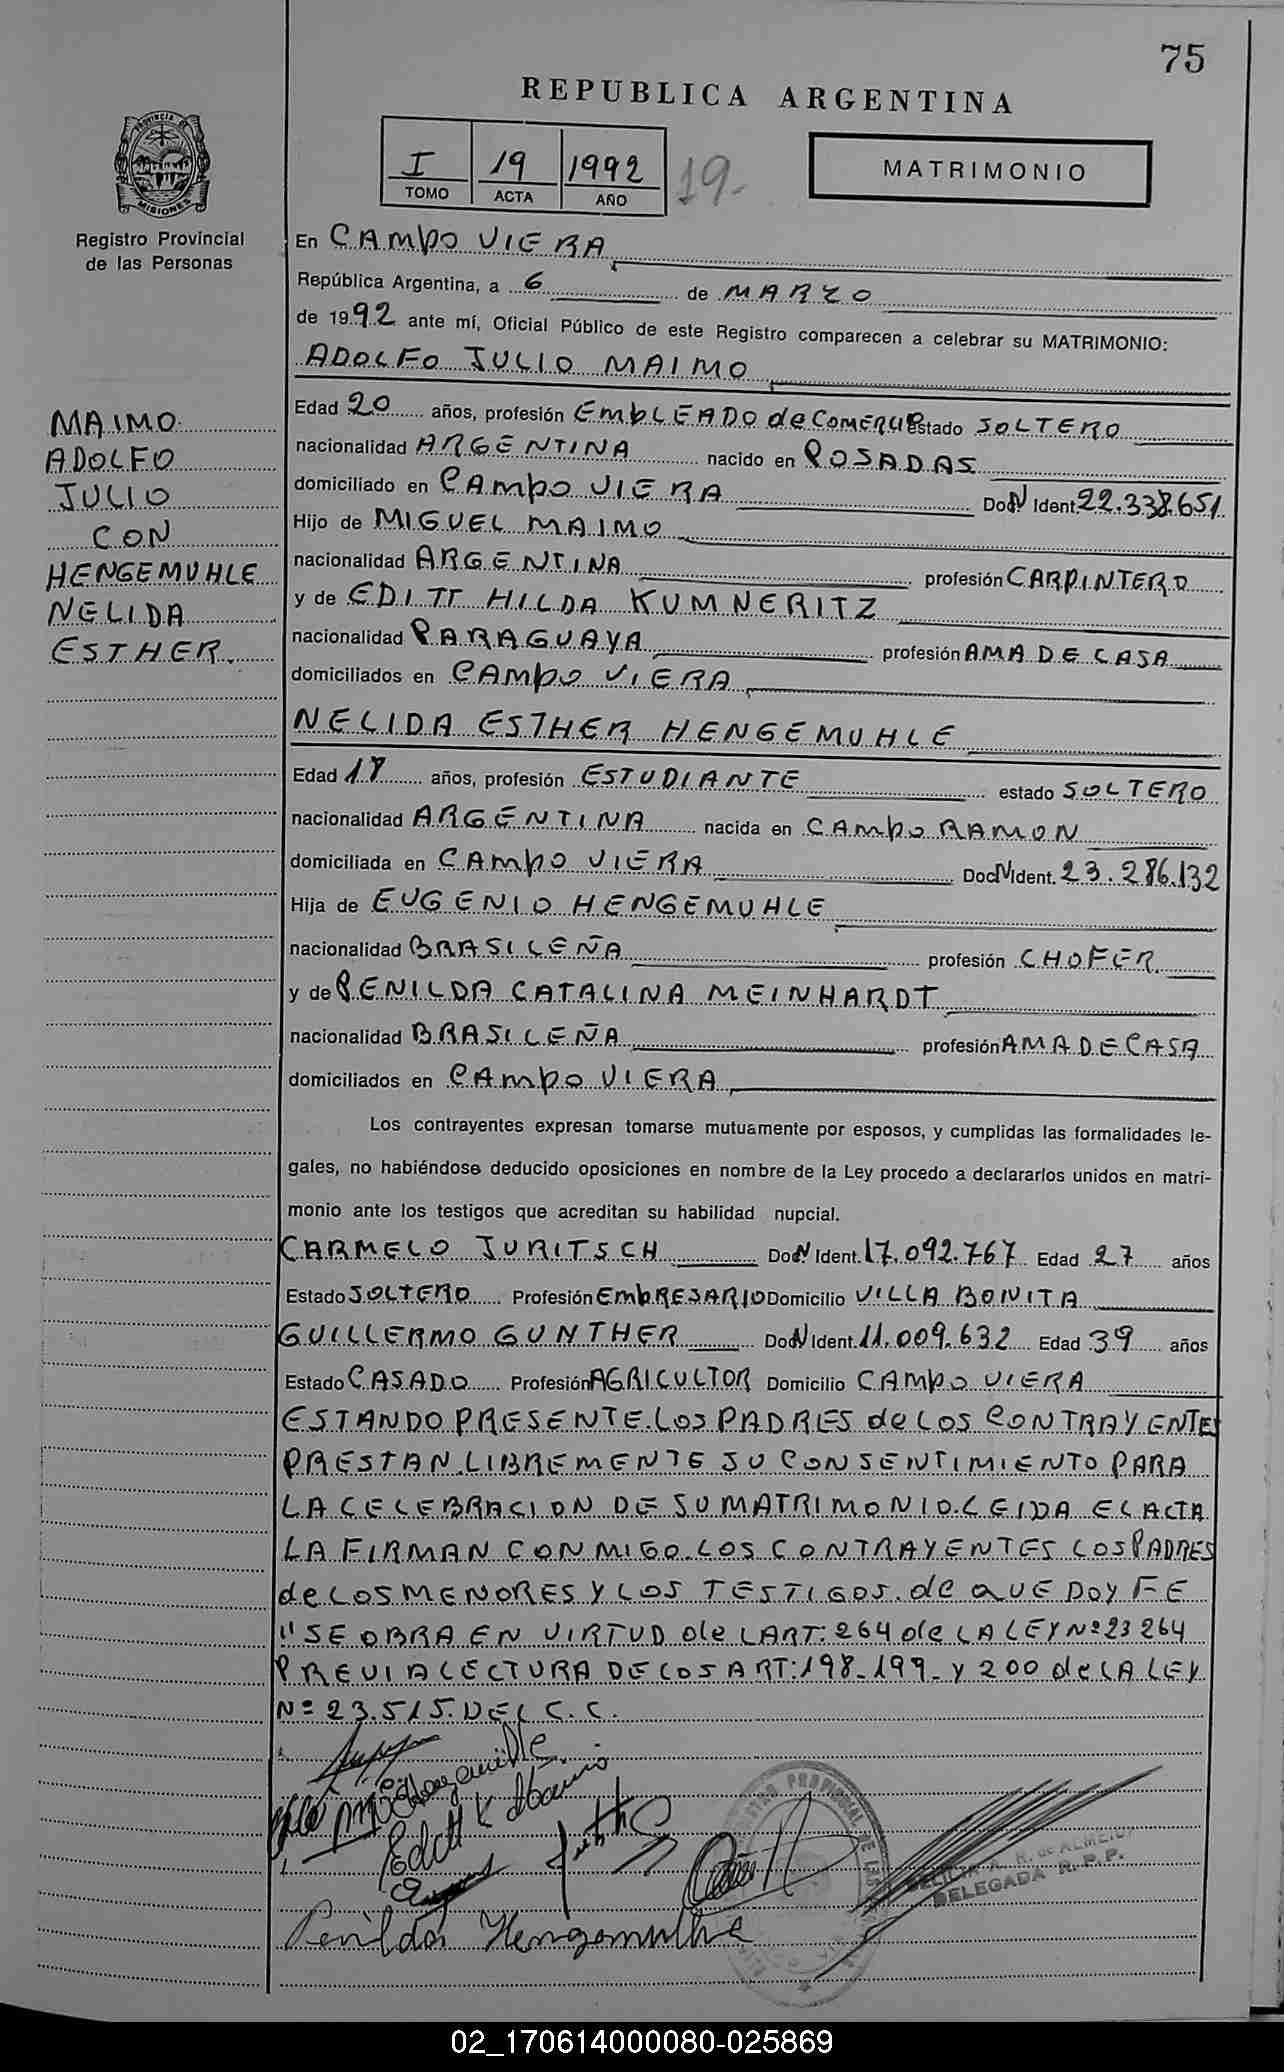 75
REPUBLICA ARGENTINA
I 19 1992 19.
TOMO ACTA AÑO
MATRIMONIO
PROVINCIA DE MISIONES
Registro Provincial
de las Personas
En CAMPO VIERA
República Argentina, a 6 de MARZO
de 1992 ante mí, Oficial Público de este Registro comparecen a celebrar su MATRIMONIO:
ADOLFO JULIO MAIMO
MAIMO
ADOLFO
JULIO
CON
HENGEMUHLE
NELIDA
ESTHER.
Edad 20 años, profesión EMPLEADO de COMERCIO estado SOLTERO
nacionalidad ARGENTINA nacido en POSADAS
domiciliado en CAMPO VIERA DocN Ident 22.338.651
Hijo de MIGUEL MAIMO
nacionalidad ARGENTINA profesión CARPINTERO
y de EDITT HILDA KUMNERITZ
nacionalidad PARAGUAYA profesión AMA DE CASA
domiciliados en CAMPO VIERA
NELIDA ESTHER HENGEMUHLE
Edad 18 años, profesión ESTUDIANTE estado SOLTERO
nacionalidad ARGENTINA nacida en CAMPO RAMON
domiciliada en CAMPO VIERA DocN Ident. 23.286.132
Hija de EUGENIO HENGEMUHLE
nacionalidad BRASILEÑA profesión CHOFER
y de PENILDA CATALINA MEINHARDT
nacionalidad BRASILEÑA profesión AMA DE CASA
domiciliados en CAMPO VIERA
Los contrayentes expresan tomarse mutuamente por esposos, y cumplidas las formalidades le-
gales, no habiéndose deducido oposiciones en nombre de la Ley procedo a declararlos unidos en matri-
monio ante los testigos que acreditan su habilidad nupcial.
CARMELO JURITSCH DocN Ident. 17.092.767 Edad 27 años
Estado SOLTERO Profesión EMPRESARIO Domicilio VILLA BONITA
GUILLERMO GUNTHER DocN Ident. 11.009.632 Edad 39 años
Estado CASADO Profesión AGRICULTOR Domicilio CAMPO VIERA
ESTANDO PRESENTE LOS PADRES de LOS CONTRAYENTES
PRESTAN LIBREMENTE SU CONSENTIMIENTO PARA
LA CELEBRACION DE SU MATRIMONIO. LEIDA EL ACTA
LA FIRMAN CONMIGO LOS CONTRAYENTES LOS PADRES
de LOS MENORES Y LOS TESTIGOS. de QUE DOY FE
"SE OBRA EN VIRTUD de L ART: 264 de LA LEY Nº 23264
PREVIA LECTURA DE LOS ART: 198-199- y 200 de LA LEY
Nº 23.515. DEL C.C.
Edith K de Maimo
Penilda Hengemuhle
REGISTRO PROVINCIAL DE LAS
R. de ALMEIDA
DELEGADA R.P.P.
02_170614000080-025869